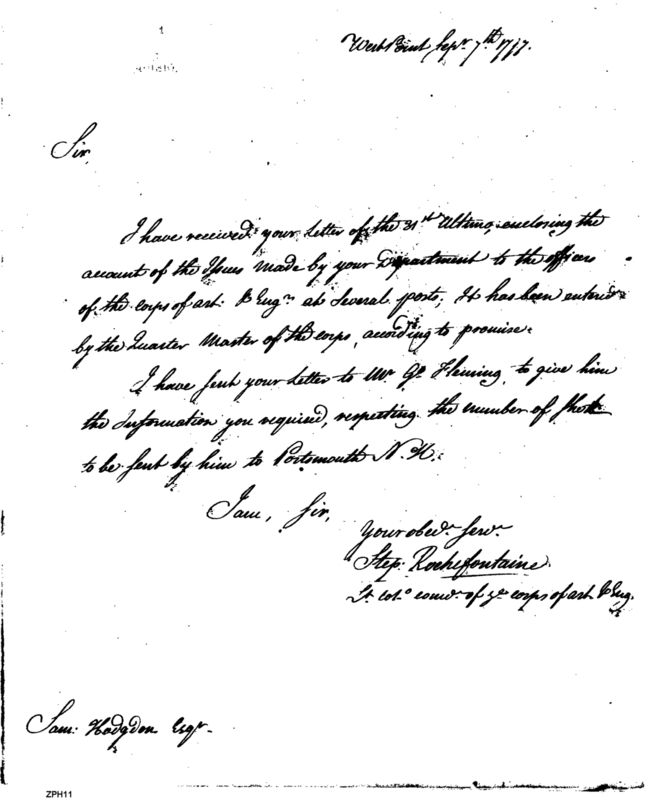 1
West Point Sepr. 7th 1797.
Sir,
I have received your Letter of the 31st Ultimo, enclosing the
account of the Issues Made by your Department to the officers
of the corps of art. & Engrs at Several posts; It has been entered
by the Quarter Master of the corps, according to promise.
I have sent your Letter to Mr. Ge. Fleming, to give him
the Information you required, respecting the number of Shot
to be sent by him to Portsmouth N. H.
I am, Sir,
Your obedt. Servt.
Step: Rochefontaine
Lt. Colo. comdt. of ye corps of art. & Eng.
Sam: Hodgdon Esqr.
ZPH11